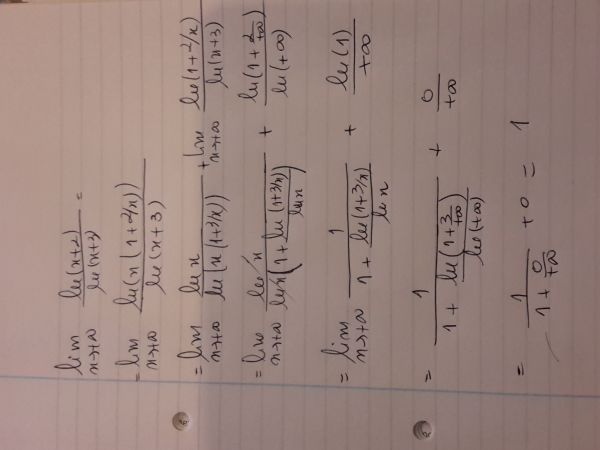 lim x→+∞ ln(x+2)/ln(x+3) =
= lim x→+∞ ln(x(1+2/x))/ln(x+3)
= lim x→+∞ ln x/ln(x(1+3/x)) + lim x→+∞ ln(1+2/x)/ln(x+3)
= lim x→+∞ ln x/(ln x(1+ln(1+3/x)/ln x)) + ln(1+2/+∞)/ln(+∞)
= lim x→+∞ 1/(1+ln(1+3/x)/ln x) + ln(1)/+∞
= 1/(1+ln(1+3/+∞)/ln(+∞)) + 0/+∞
= 1/(1+0/+∞) + 0 = 1